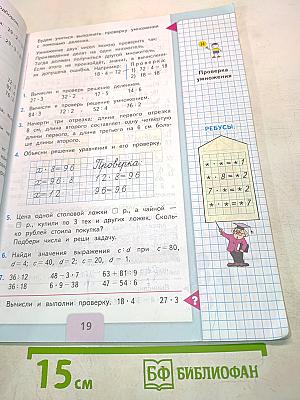 Будем учиться выполнять проверку умножения
с помощью деления.
Умножение двух чисел можно проверить так:
Произведение делят на один множитель.
Тогда должен получиться другой множитель.
Если этого не произойдёт, значит, в вычислениях
допущена ошибка. Например: Проверка:
18 · 4 = 72 1) 72 : 4 = 18
2) 18 = 18
1. Вычисли и проверь решение делением.
27 · 3 32 · 2 17 · 5 14 · 6
2. Вычисли и проверь решение умножением.
84 : 3 76 : 2 72 : 4 52 : 2
3. Начерти три отрезка: длина первого отрезка
8 см, длина второго составляет одну четвёртую
длины первого, а длина третьего на 6 см боль-
ше длины второго.
4. Объясни решение уравнения и его проверку.
x · 8 = 96 Проверка
x = 96 : 8 12 · 8 = 96
x = 12 96 = 96
5. Цена одной столовой ложки □ р., а чайной —
□ р., купили по 3 тех и других ложек. Сколь-
ко рублей стоила покупка?
Подбери числа и реши задачу.
6. Найди значения выражения c : d при c = 80,
d = 4; c = 40, d = 2; c = 20, d = 1.
7. 36 : 12 48 − 3 · 7 63 + 81 : 9
36 : 18 6 · 9 − 38 47 − 54 : 6
Вычисли и выполни проверку. 18 · 4 27 · 3
?
19
Проверка
умножения
РЕБУСЫ
15 см
БФ БИБЛИОФАН